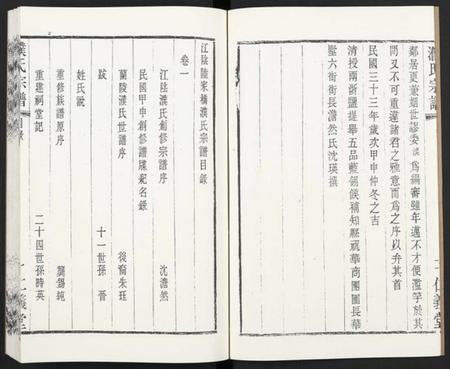 濮氏宗譜
鄰居更兼烟世謬委 為編審雖年邁不才便濫竽於其
間又不可重違諸君之雅意而為之序以弁其首
民國三十三年歲次甲申仲冬之吉
清授兩浙鹽提舉五品藍翎候補知縣 華商團團長華
墅六街街長澹然氏沈瑛撰
仁義堂
濮氏宗譜
目錄
江陰陸家橋濮氏宗譜目錄
卷一
江陰濮氏創修宗譜序 沈澹然
民國甲申創修譜牒紀名錄
蘭陵濮氏世譜序 後裔朱珏
跋 十一世孫 晉
姓氏說
重修族譜原序 龔錫純
重建祠堂記 二十四世孫時英
仁義堂